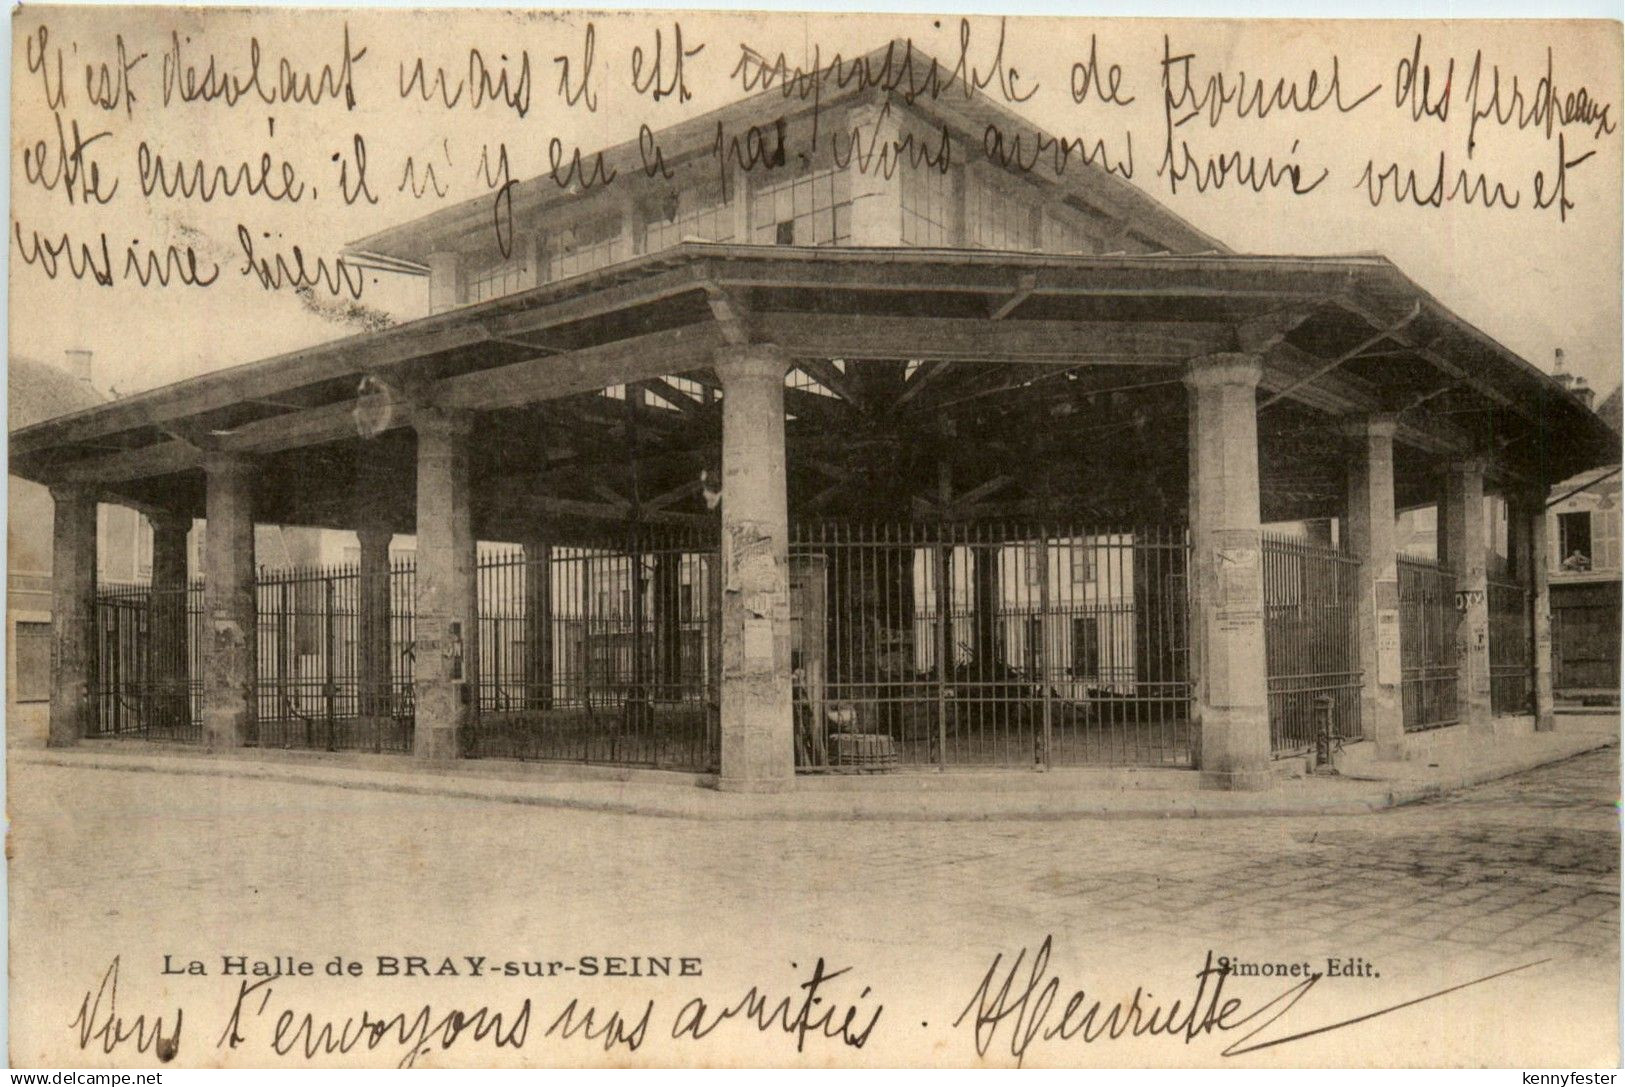 C'est désolant mais il est impossible de trouver des perdreaux
cette année, il n'y en a pas, Nous avons trouvé cousin et
cousine bien.
La Halle de BRAY-sur-SEINE
Simonet, Edit.
Nous t'envoyons nos amitiés. Henriette
delcampe.net
kennyfester